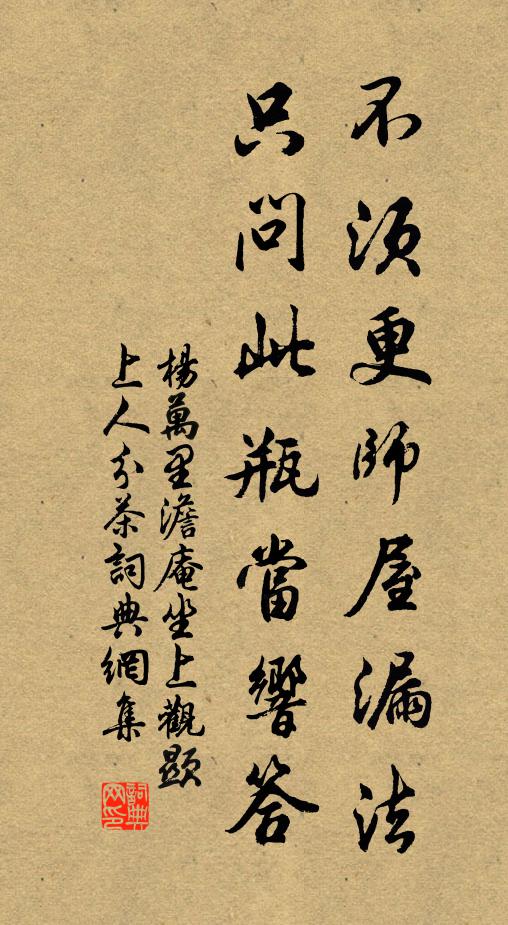 不須更師屋漏法
只問此瓶當響答
楊萬里澹庵坐上觀顯
上人分茶詞典網集
詞典
网印